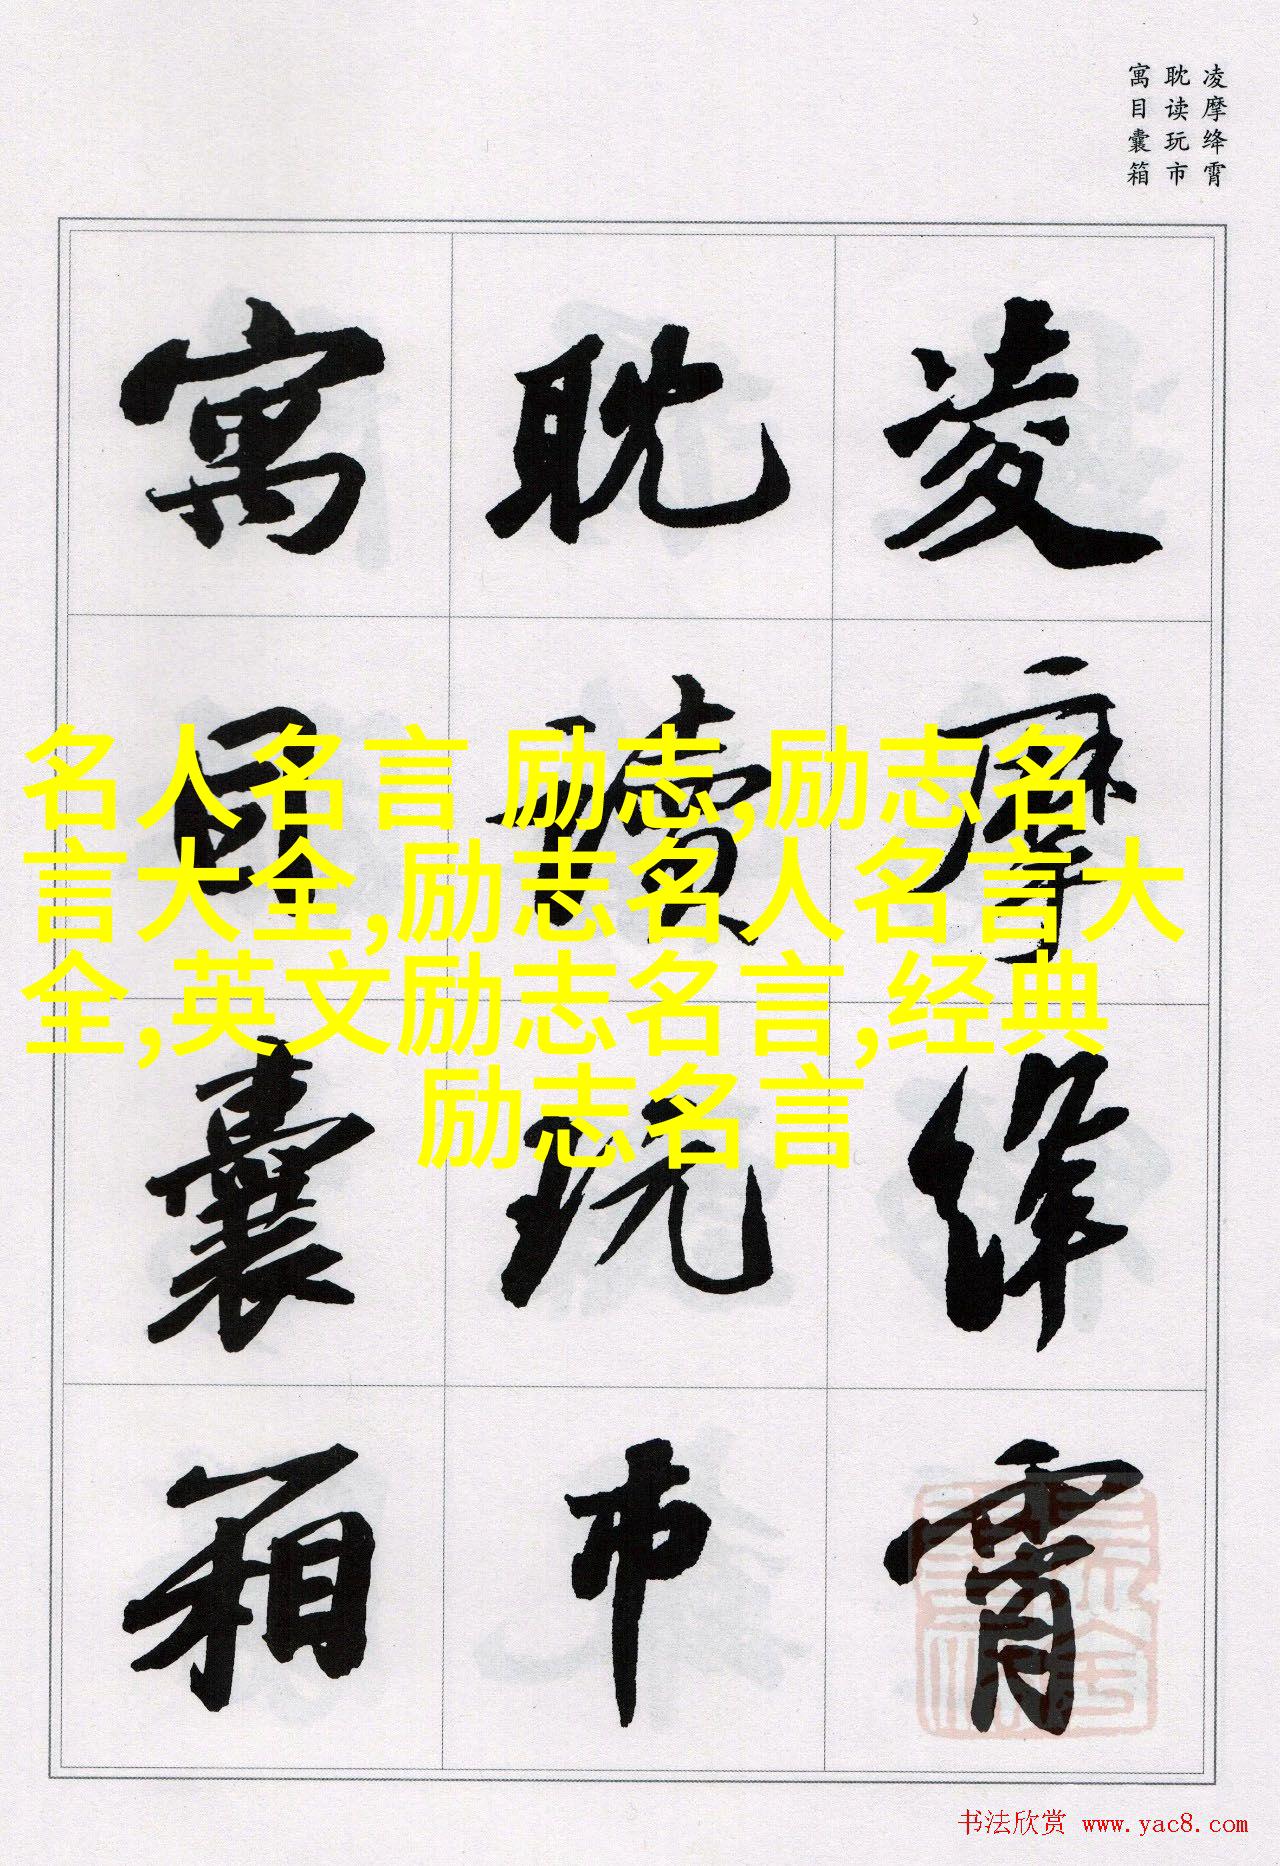 凌摩绛霄
耽读玩市
寓目囊箱
凌摩绛霄
耽读玩市
寓目囊箱
名人名言 励志,励志名
言大全,励志名人名言大
全,英文励志名言,经典
励志名言
书法欣赏 www.yac8.com